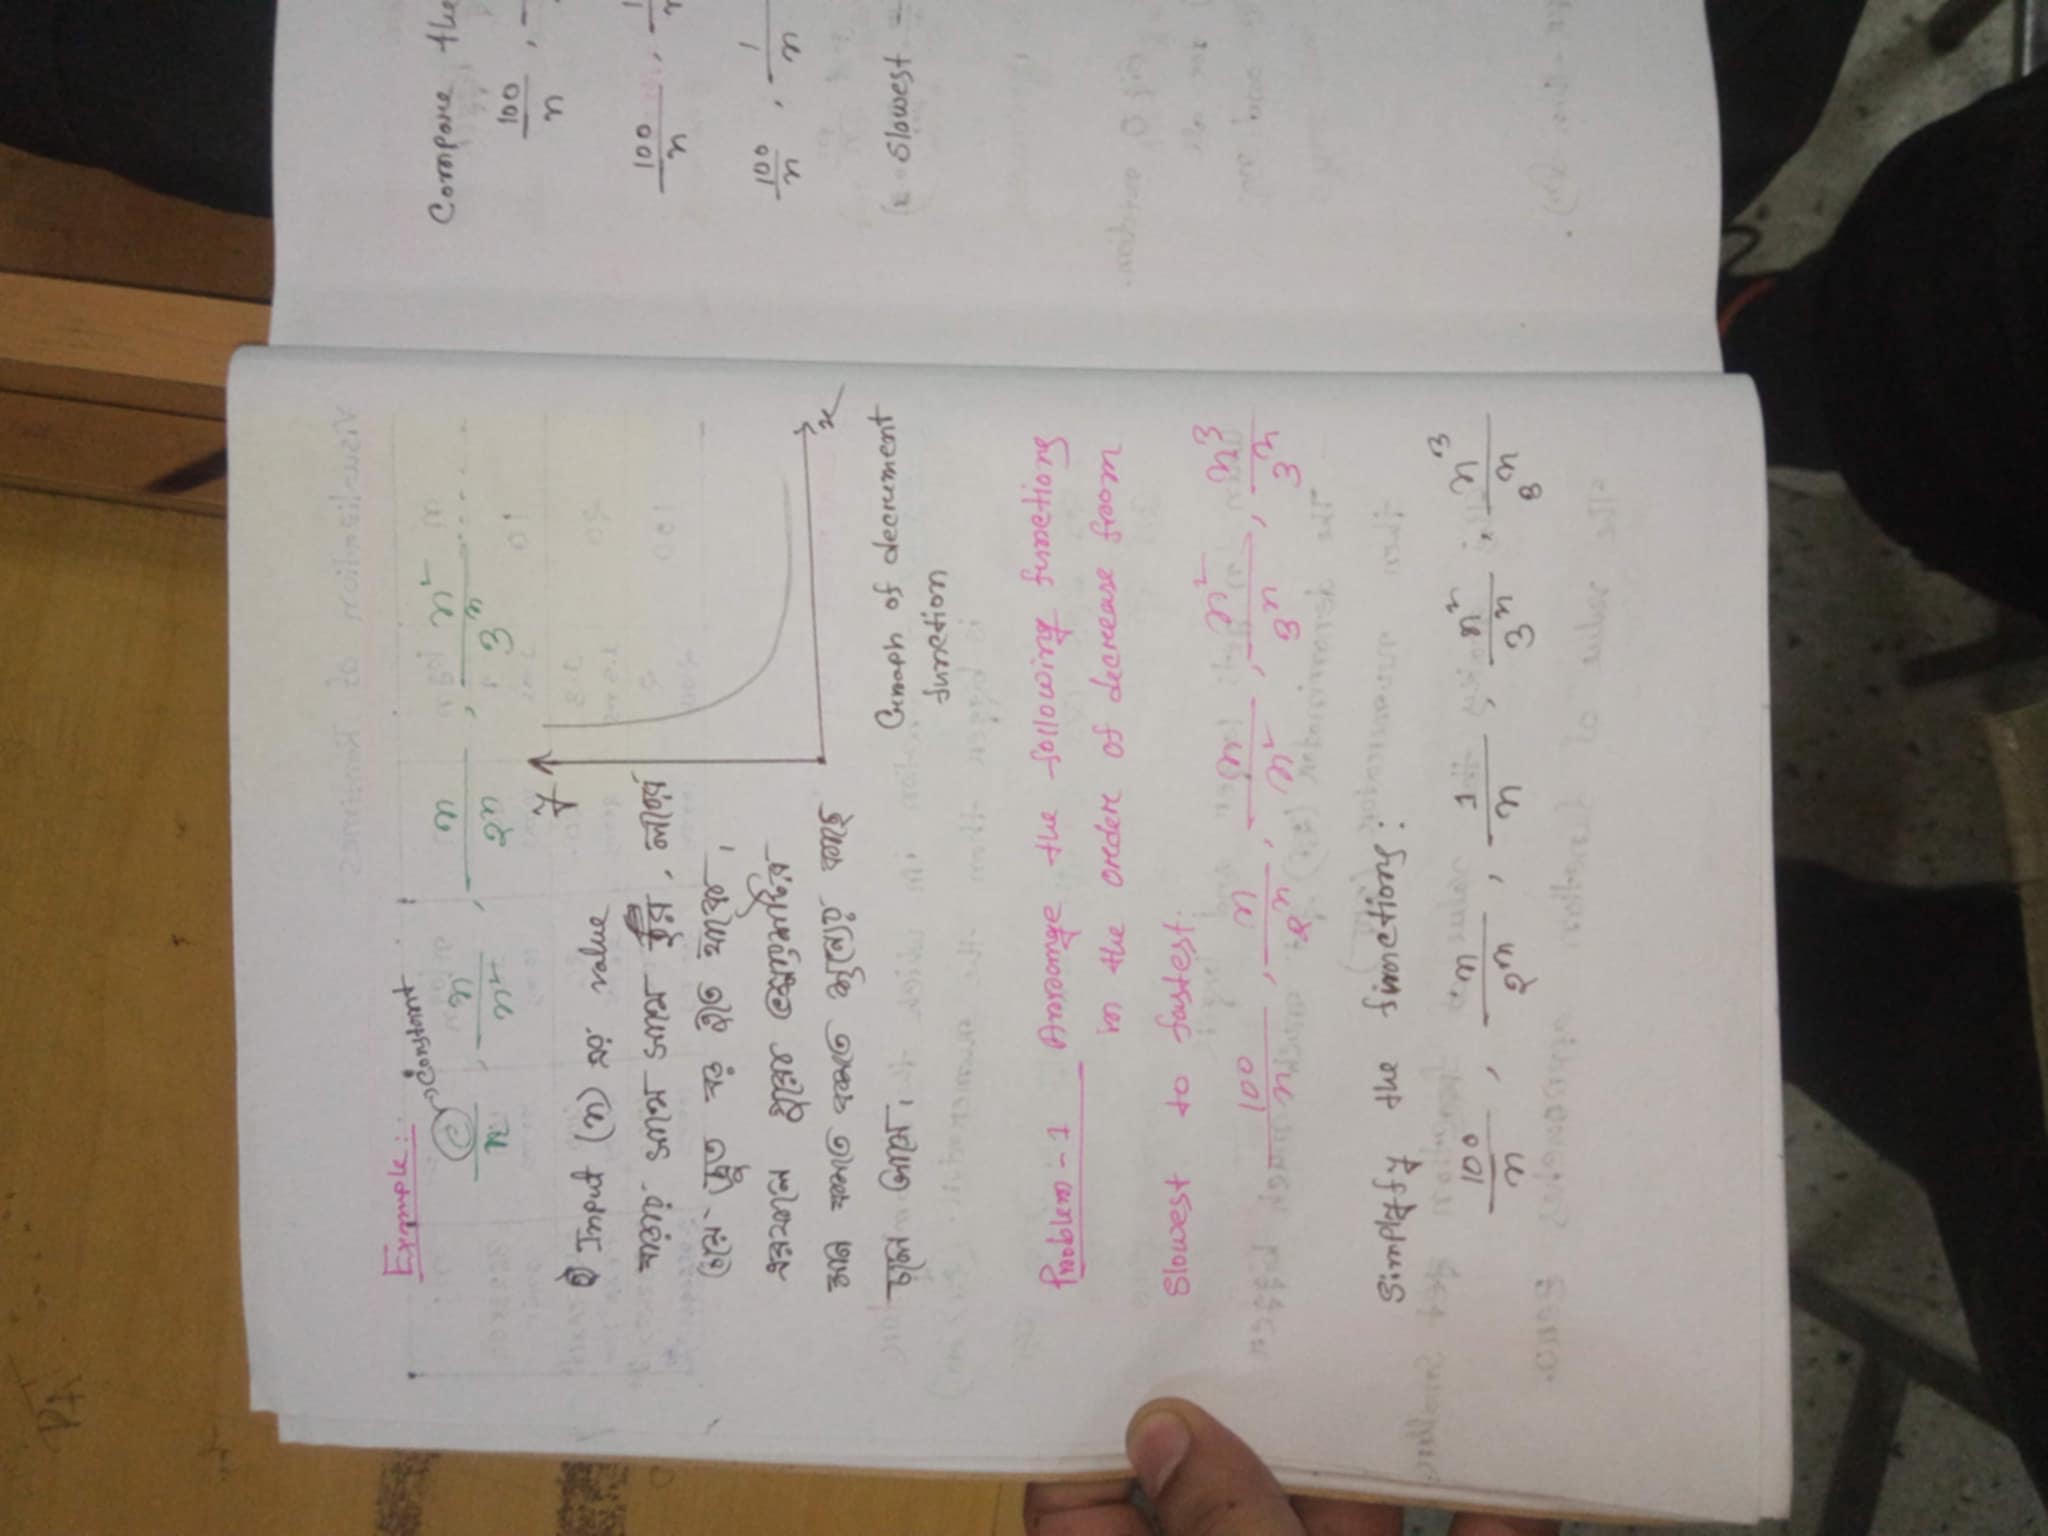 Example:
c → constant
c/n , n/n² , n/2ⁿ , n²/3ⁿ ....
Input (n) এর value
বাড়ার সাথে সাথে হর, লবের
চেয়ে দ্রুত বড় হতে থাকে,
এরফলে পুরো ভগ্নাংশটির
মান কমতে কমতে শূন্যের কাছে
চলে আসে।
y
x
Graph of decrement
function
Problem - 1 Arrange the following functions
in the order of decrease from
slowest to fastest.
100/n , n/2ⁿ , n/n² , n²/3ⁿ , n³/3ⁿ
Simplyfy the functions:
100/n , n/2ⁿ , 1/n , n²/3ⁿ , n³/3ⁿ
Compare the
100/n ,
100/n ,
100/n , 1/n
Slowest